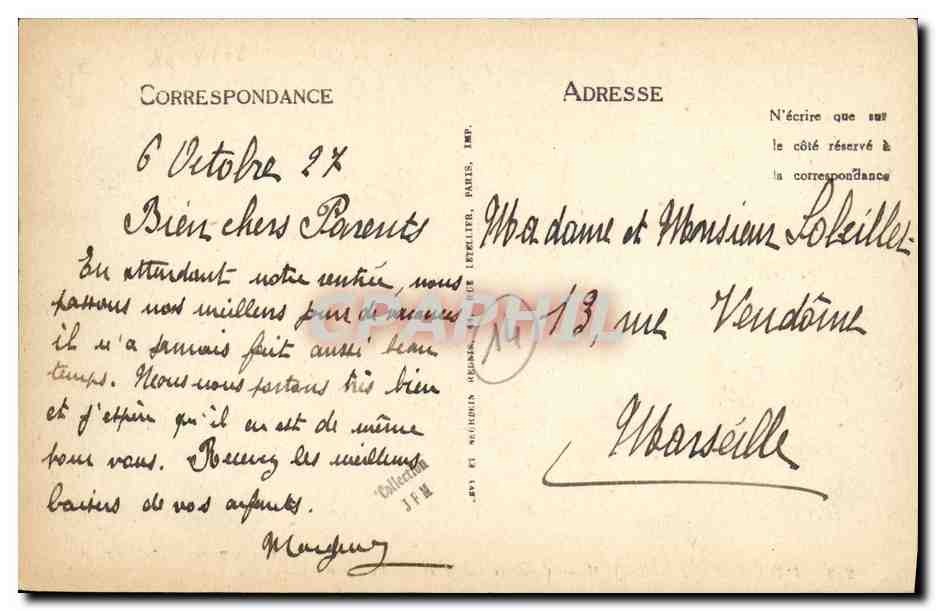 CORRESPONDANCE
6 Octobre 27
Bien chers Parents
En attendant notre rentrée, nous
passons nos meilleurs jours de vacances
il n'a jamais fait aussi beau
temps. Nous nous portons très bien
et j'espère qu'il en est de même
pour vous. Recevez les meilleurs
baisers de vos enfants.
Collection
J F M
LEVY ET NEURDEIN REUNIS, 44, RUE LETELLIER, PARIS, IMP.
14
CPAPHIL
ADRESSE
N'écrire que sur
le côté réservé à
la correspondance
Madame et Monsieur
13, rue Vendôme
Marseille